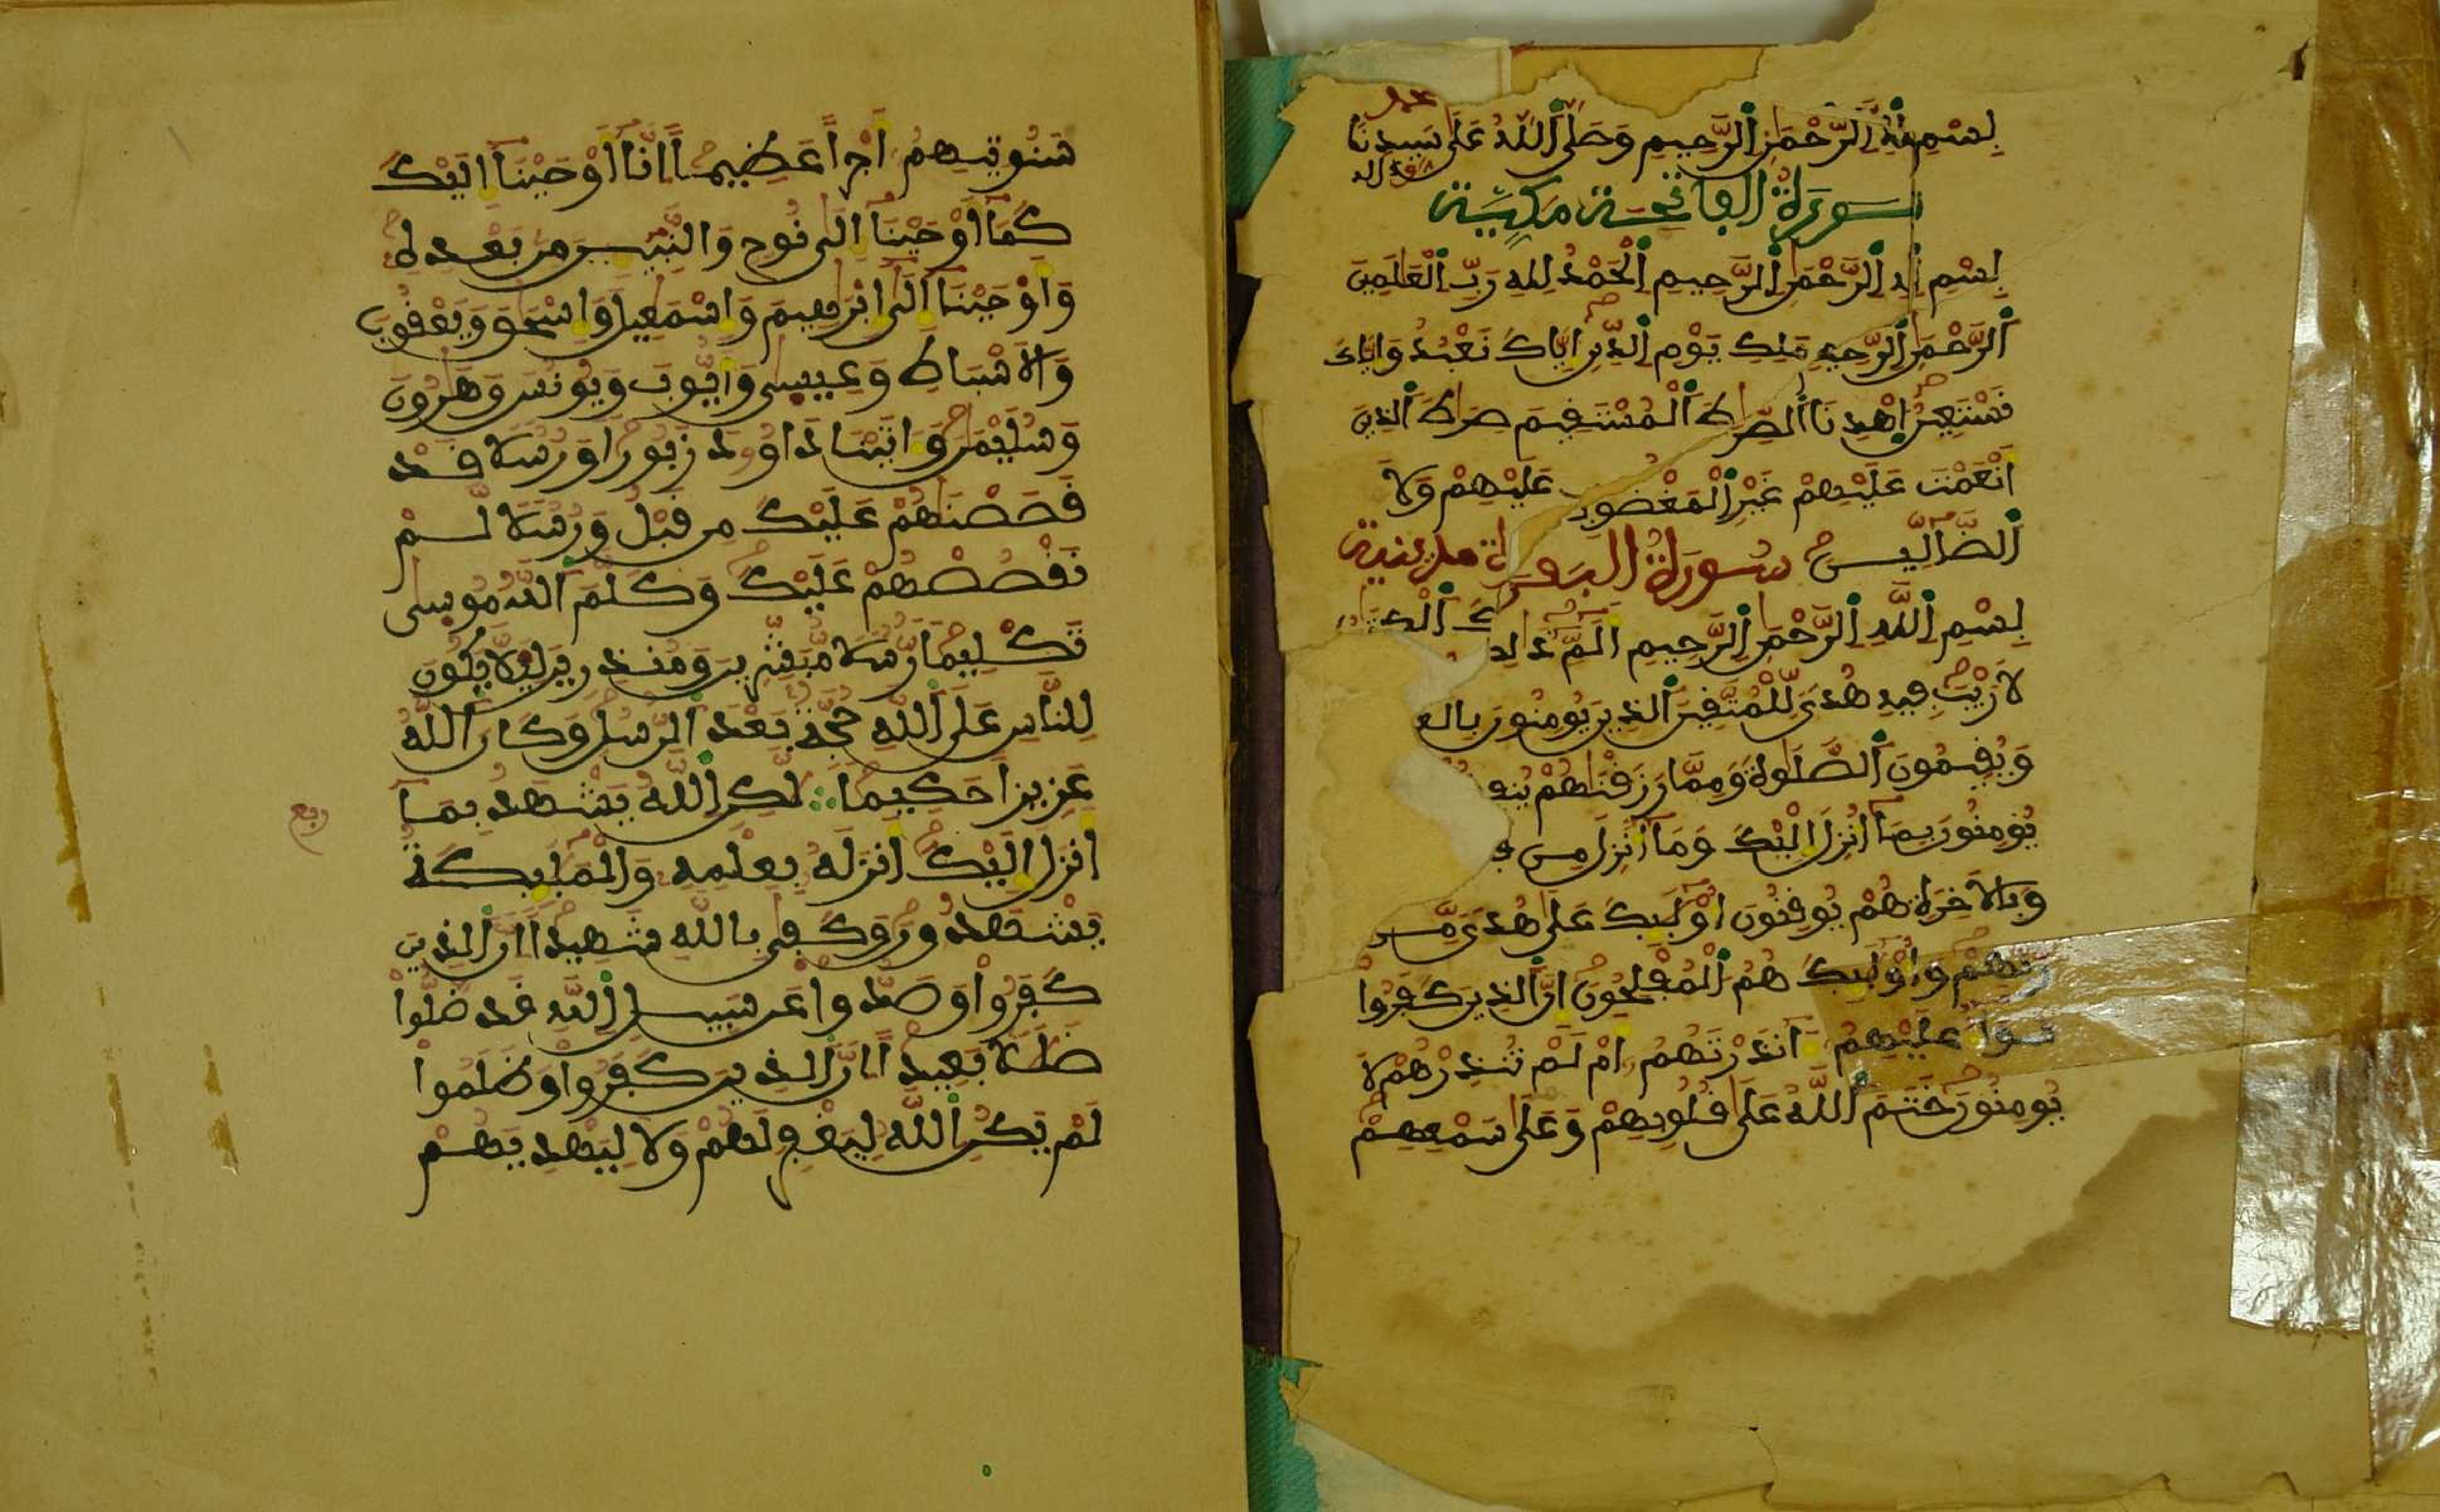 بِسْمِ اللَّهِ الرَّحْمَٰنِ الرَّحِيمِ وَصَلَّى اللَّهُ عَلَى سَيِّدِنَا
محمد
سورة الفاتحة مكية
بِسْمِ اللَّهِ الرَّحْمَٰنِ الرَّحِيمِ الْحَمْدُ لِلهِ رَبِّ الْعَالَمِينَ
الرَّحْمَٰنِ الرَّحِيمِ مَلِكِ يَوْمِ الدِّينِ إِيَّاكَ نَعْبُدُ وَإِيَّاكَ
نَسْتَعِينُ اهْدِنَا الصِّرَٰطَ الْمُسْتَقِيمَ صِرَٰطَ الذِينَ
أَنْعَمْتَ عَلَيْهِمْ غَيْرِ الْمَغْضُوبِ عَلَيْهِمْ وَلَا
الضَّالِّينَ سُورَةُ الْبَقَرَة مدنية
بِسْمِ اللَّهِ الرَّحْمَٰنِ الرَّحِيمِ الَمِّ ذَالِكَ الْكِتَٰبُ
لَا رَيْبَ فِيهِ هُدىً لِّلْمُتَّقِينَ الذِينَ يُومِنُونَ بالغ
وَيُقِيمُونَ الصَّلَوٰةَ وَمِمَّا رَزَقْنَٰهُمْ يُنفِ
يُومِنُونَ بِمَا أُنزِلَ إِلَيْكَ وَمَا أُنزِلَ مِن
وَبِالَاخِرَةِ هُمْ يُوقِنُونَ أُوْلَٰئِكَ عَلَىٰ هُدىً مِّن
رَّبِّهِمْ وَأُوْلَٰئِكَ هُمُ الْمُفْلِحُونَ إِنَّ الذِينَ كَفَرُوا
سَوَاءٌ عَلَيْهِمُ ءَانذَرْتَهُمُ أَمْ لَمْ تُنذِرْهُمْ لَا
يُومِنُونَ خَتَمَ اللَّهُ عَلَىٰ قُلُوبِهِمْ وَعَلَىٰ سَمْعِهِمْ
سَنُوتِيهِمُ أَجْراً عَظِيماً إِنَّا أَوْحَيْنَا إِلَيْكَ
كَمَا أَوْحَيْنَا إِلَىٰ نُوحٍ وَالنَّبِيِّينَ مِن بَعْدِهِ
وَأَوْحَيْنَا إِلَىٰ إِبْرَٰهِيمَ وَإِسْمَٰعِيلَ وَإِسْحَٰقَ وَيَعْقُوبَ
وَالَاسْبَاطِ وَعِيسَىٰ وَأَيُّوبَ وَيُونُسَ وَهَٰرُونَ
وَسُلَيْمَٰنَ وَءَاتَيْنَا دَاوُودَ زَبُوراً وَرُسُلاً قَدْ
قَصَصْنَٰهُمْ عَلَيْكَ مِن قَبْلُ وَرُسُلاً لَّمْ
نَقْصُصْهُمْ عَلَيْكَ وَكَلَّمَ اللَّهُ مُوسَىٰ
تَكْلِيماً رُّسُلاً مُّبَشِّرِينَ وَمُنذِرِينَ لِيَلَّا يَكُونَ
لِلنَّاسِ عَلَى اللَّهِ حُجَّةٌ بَعْدَ الرُّسُلِ وَكَانَ اللَّهُ
عَزِيزاً حَكِيماً لَّٰكِنِ اللَّهُ يَشْهَدُ بِمَا
ربع
أَنزَلَ إِلَيْكَ أَنزَلَهُ بِعِلْمِهِ وَالْمَلَٰئِكَةُ
يَشْهَدُونَ وَكَفَىٰ بِاللَّهِ شَهِيداً إِنَّ الذِينَ
كَفَرُوا وَصَدُّوا عَن سَبِيلِ اللَّهِ قَد ضَّلُّوا
ضَلَٰلاً بَعِيداً إِنَّ الذِينَ كَفَرُوا وَظَلَمُوا
لَمْ يَكُنِ اللَّهُ لِيَغْفِرَ لَهُمْ وَلَا لِيَهْدِيَهُمْ